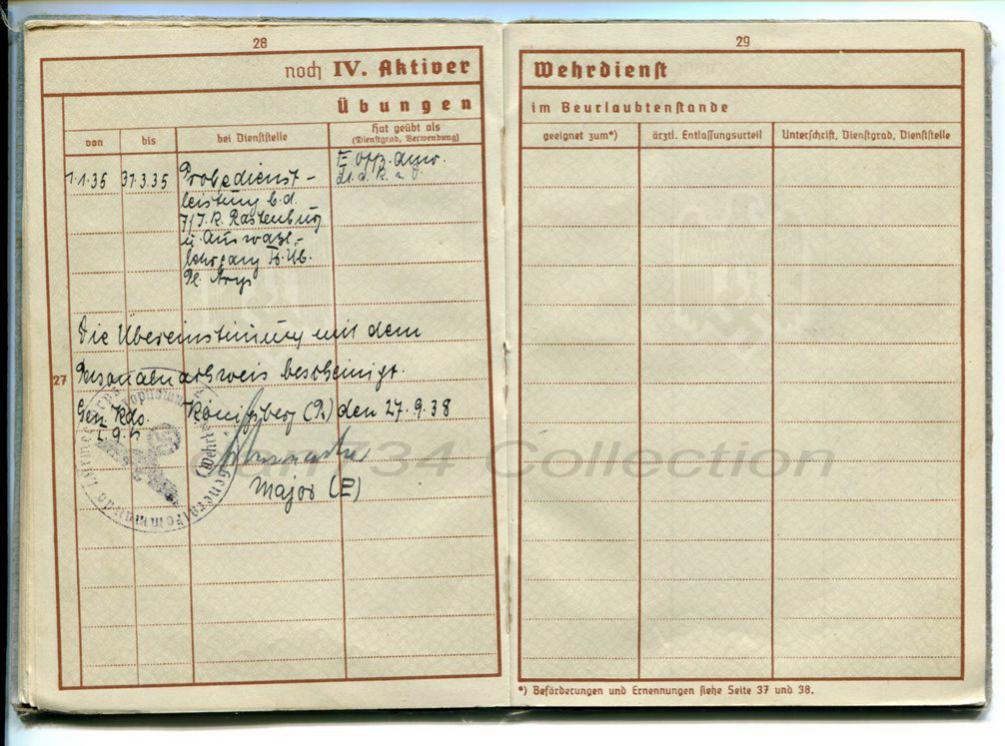 28
noch IV. Aktiver
Übungen
von
bis
bei Dienststelle
hat geübt als
(Dienstgrad, Verwendung)
1.1.35 31.3.35 Probedienst-
leistung b.d.
7/I.R. Rastenburg
u. Auswahl-
lehrgang Tr. Üb.
Pl. Arys
E Offz. Anw.
Die Übereinstimmung mit dem
27
Personalnachweis bescheinigt.
Gen. Kdo. Königsberg (Pr.) den 27.9.38
Major (E)
Generalkommando
29
Wehrdienst
im Beurlaubtenstande
geeignet zum*)
ärztl. Entlassungsurteil
Unterschrift, Dienstgrad, Dienststelle
734 Collection
*) Beförderungen und Ernennungen siehe Seite 37 und 38.